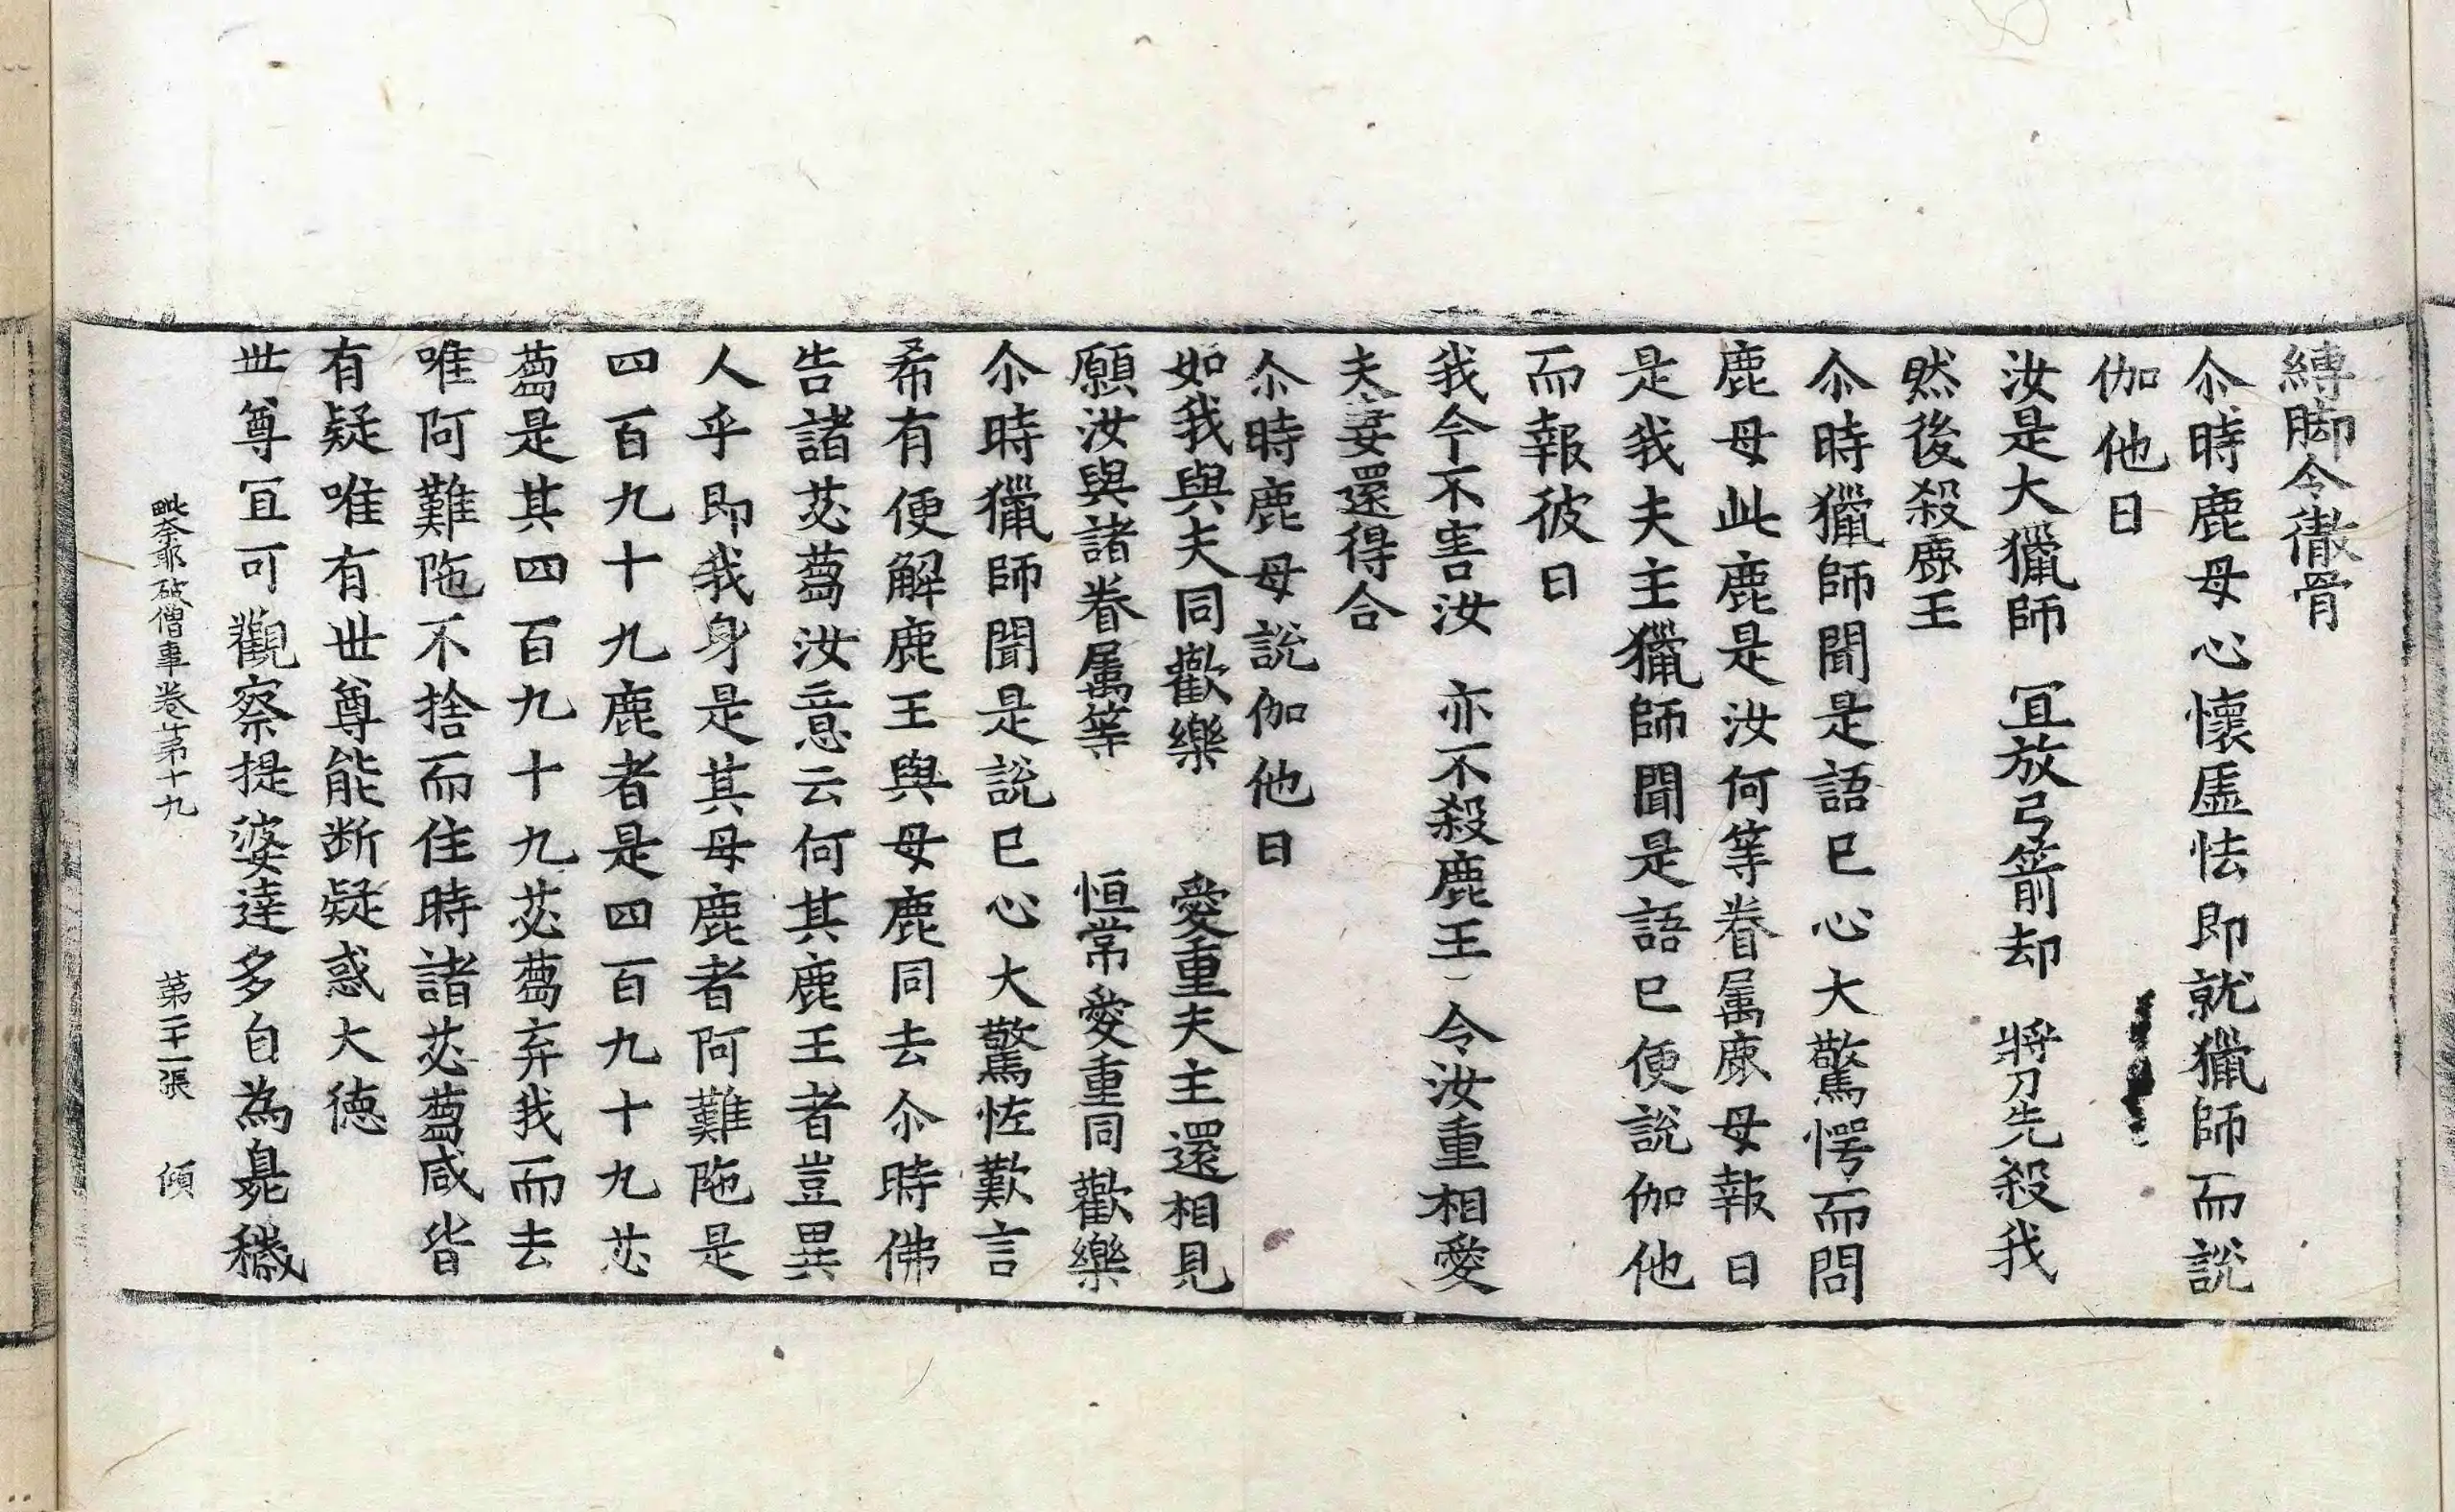 縛脚令徹骨
尒時鹿母心懷虛怯即就獵師而說
伽他曰
汝是大獵師　冝放弓箭却　將刀先殺我
然後殺鹿王
尒時獵師聞是語已心大驚愕而問
鹿母此鹿是汝何等眷属鹿母報曰
是我夫主獵師聞是語已便說伽他
而報彼曰
我今不害汝　亦不殺鹿王　令汝重相愛
夫妻還得合
尒時鹿母說伽他曰
如我與夫同歡樂　愛重夫主還相見
願汝與諸眷属等　恒常愛重同歡樂
尒時獵師聞是說已心大驚恠歎言
希有便解鹿王與母鹿同去尒時佛
告諸苾蒭汝意云何其鹿王者豈異
人乎即我身是其母鹿者阿難陁是
四百九十九鹿者是四百九十九苾
蒭是其四百九十九苾蒭弃我而去
唯阿難陁不捨而住時諸苾蒭咸皆
有疑唯有世尊能断疑惑大德
世尊冝可觀察提婆達多自為臭穢
毗奈耶破僧事卷苐十九　苐二十一張　傾